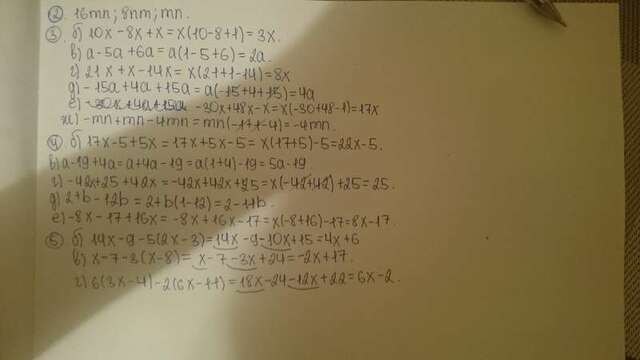 ② 16mn; 8mn; mn.
③ б) 10x - 8x + x = x(10-8+1) = 3x.
в) a - 5a + 6a = a(1-5+6) = 2a
г) 21x + x - 14x = x(21+1-14) = 8x
д) -15a + 4a + 15a = a(-15+4+15) = 4a
-30x+48x-x=x(-30+48-1)=17x
ж) -mn+mn-4mn = mn(-1+1-4)=-4mn.
④ б) 17x-5+5x = 17x+5x-5 = x(17+5)-5=22x-5.
в) a-19+4a = a+4a-19=a(1+4)-19=5a-19
г) -42x+25+42x = -42x+42x+25=x(-42+42)+25=25.
д) 2+b-12b = 2+b(1-12)=2-11b
е) -8x-17+16x = -8x+16x-17=x(-8+16)-17=8x-17.
⑤ б) 14x-9-5(2x-3)=14x-9-10x+15=4x+6
в) x-7-3(x-8)=x-7-3x+24=-2x+17.
г) 6(3x-4)-2(6x-11)=18x-24-12x+22=6x-2.